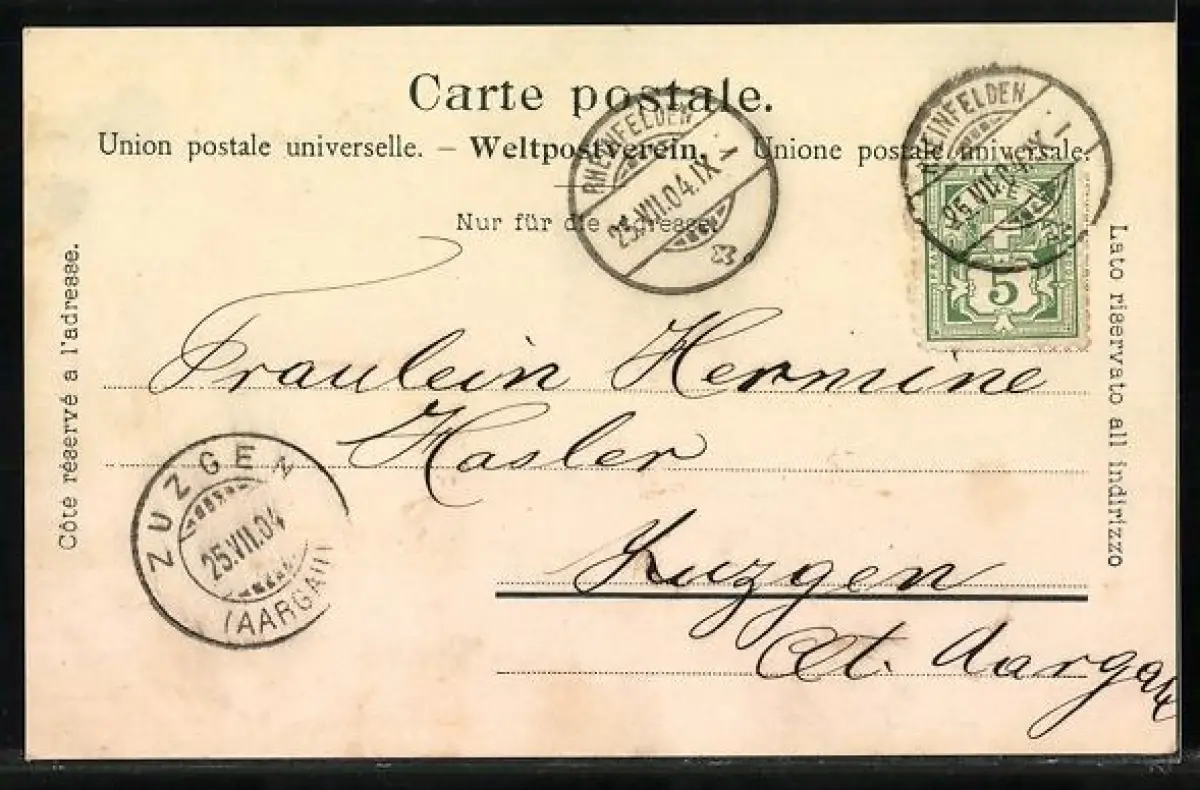 Carte postale.
Union postale universelle. – Weltpostverein. Unione postale universale.
Nur für die Adresse.
RHEINFELDEN 1
25.VII.04.IX
RHEINFELDEN 1
25.VII.04.IX
5
Côté réservé a l'adresse.
Lato riservato all indirizzo
Fräulein Hermine
Hasler
Zuzgen
Ct. Aargau
ZUZGEN
25.VII.04
(AARGAU)